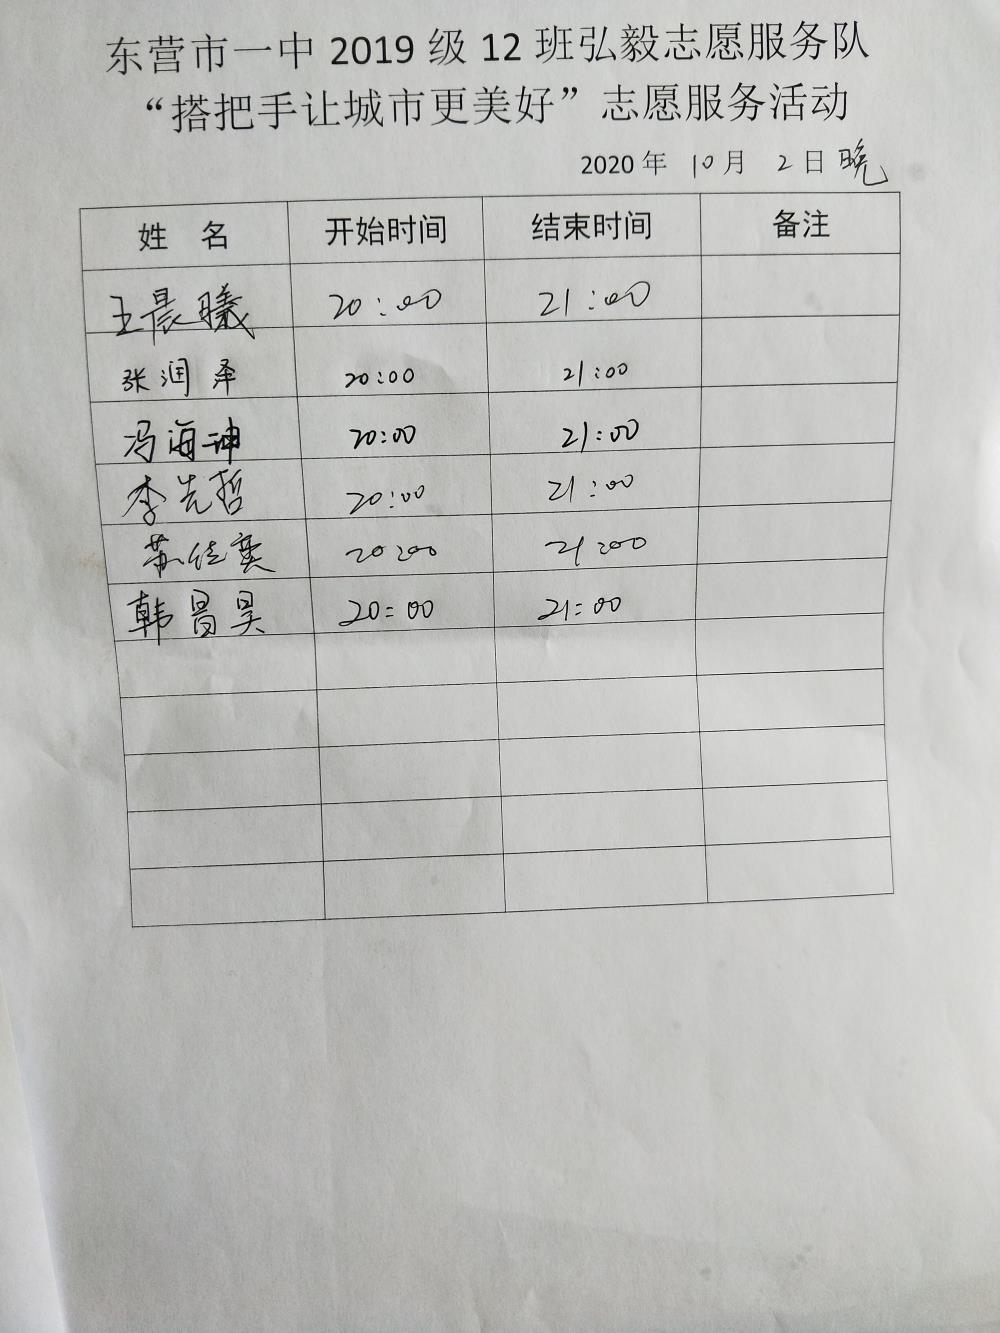 东营市一中 2019 级 12 班弘毅志愿服务队
“搭把手让城市更美好”志愿服务活动
2020 年 10 月 2 日晚
姓 名 开始时间 结束时间 备注
王晨曦 20:00 21:00
张润泽 20:00 21:00
冯海珅 20:00 21:00
李先哲 20:00 21:00
苏佳奕 20:00 21:00
韩昌昊 20:00 21:00